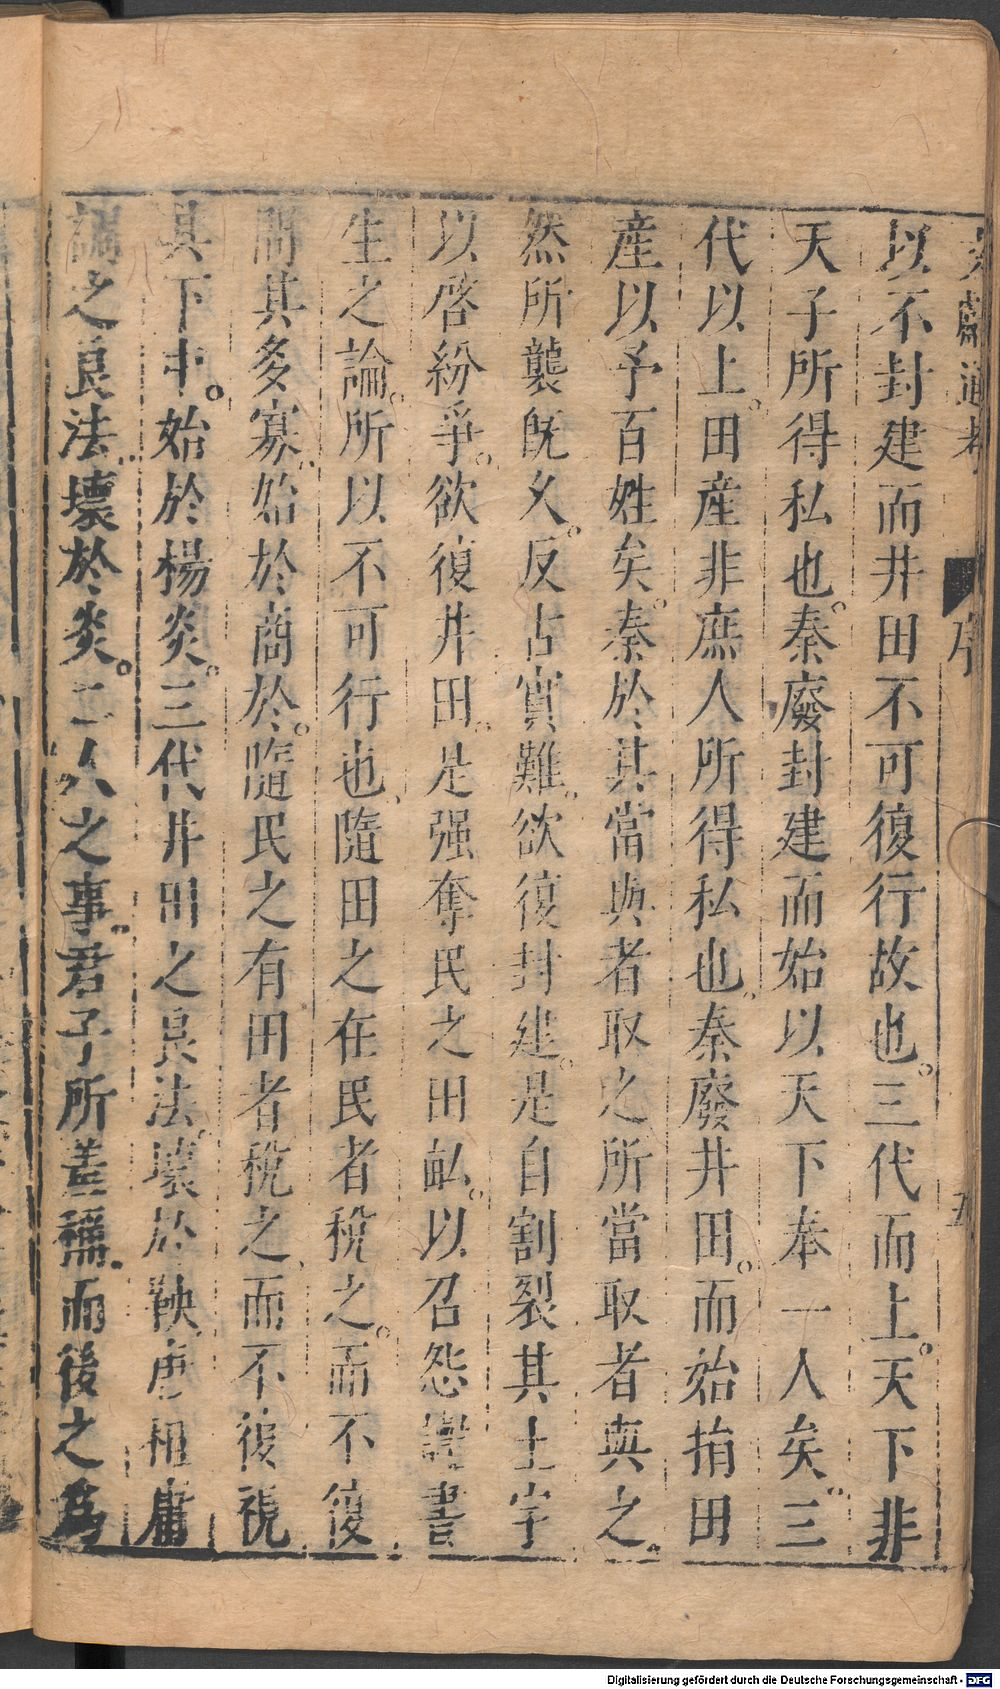 文獻通考 序 五
以不封建而井田不可復行故也三代而上天下非
天子所得私也秦廢封建而始以天下奉一人矣三
代以上田産非庶人所得私也秦廢井田而始捐田
産以予百姓矣秦於其當與者取之所當取者與之
然所襲既久反古實難欲復封建是自割裂其土宇
以啓紛爭欲復井田是强奪民之田畝以召怨讟書
生之論所以不可行也隨田之在民者稅之而不復
問其多寡始於商於隨民之有田者稅之而不復視
其下中始於楊炎三代井田之良法壞於鞅唐租庸
調之良法壞於炎二人之事君子所羞稱而後之爲
Digitalisierung gefördert durch die Deutsche Forschungsgemeinschaft - DFG